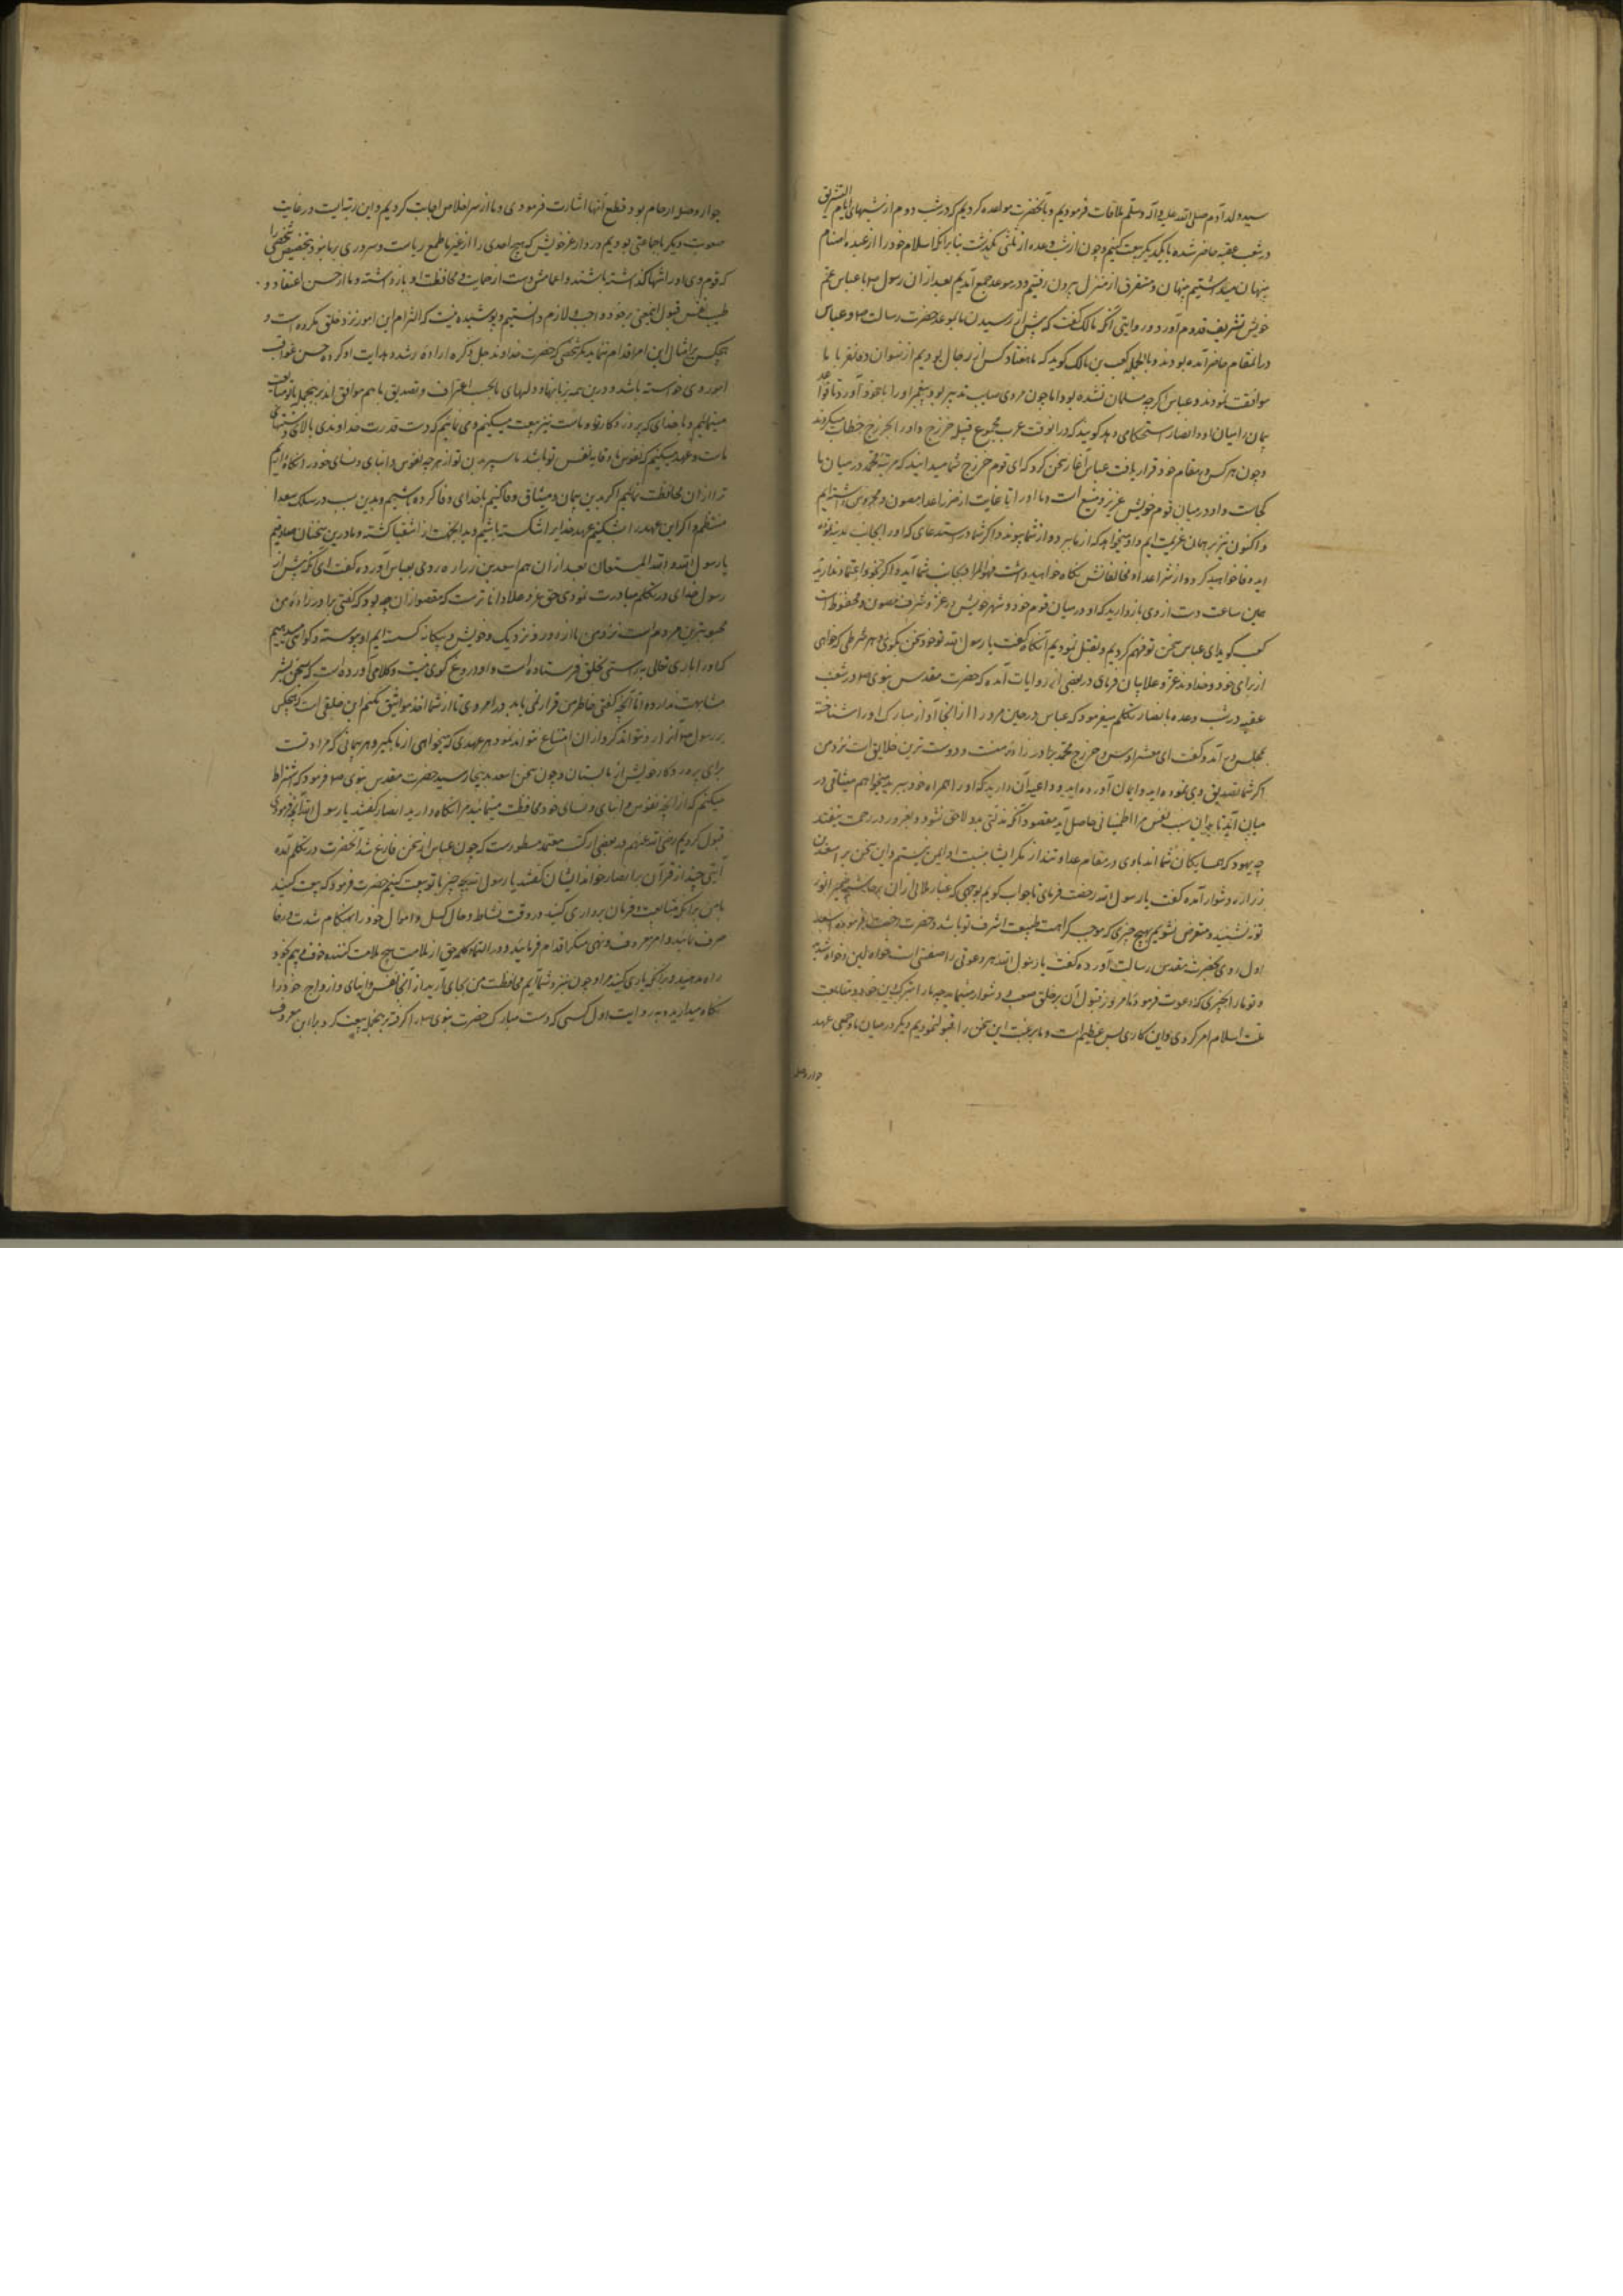 سید ولد آدم صلی الله علیه وآله وسلم ملاقات فرمودیم و با آنحضرت مواعده کردیم که در شب دوم از شبهای ایام التشریق
در شعب عقبه حاضر شده با یکدیگر بیعت کنیم و چون از شب وعده از ثلثی بگذشت بنابر آنکه اسلام خود را از عبده اصنام
پنهان میداشتیم پنهان و متفرق از منزل بیرون رفتیم و در موعد جمع آمدیم بعد از ان رسول صلعم با عباس عم
خویش تشریف قدوم آورد و در روایتی آنکه مالک گفت که پیش از رسیدن ما بموعد حضرت رسالت صلعم و عباس
در آن مقام حاضر آمده بودند و بالجمله کعب بن مالک گوید که ما هفتاد کس از رجال بودیم از نسوان دو نفر با ما
موافقت نمودند و عباس اگرچه مسلمان نشده بود اما چون مردی صایب تدبیر بود پیغمبر او را با خود آورد تا قواعد
پیمان را میان او و انصار استحکامی دهد گویند که در انوقت عرب مجموع قبیله خزرج و اوس را بخزرج خطاب میکردند
و چون هر کس بمقام خود قرار یافت عباس آغاز سخن کرد که ای قوم خزرج شما میدانید که مرتبه محمد در میان ما
کجاست و او در میان قوم خویش عزیز و منیع است و ما او را تا غایت از ضرر اعدا مصون و محروس داشته‌ایم
و اکنون نیز بر همان عزیمت ایم و او میخواهد که از ما ببرد و از شما پیوندد اگر شما در استدعای که او را بجانب
اید وفا خواهید کرد و از شر اعدا و مخالفانش نگاه خواهید داشت بجانب شما آید و اگر اعتماد ندارید
همین ساعت دست از وی بازدارید که او در میان قوم خود و شهر خویش در عز و شرف مصون و محفوظ است
کعب گوید ای عباس سخن تو فهم کردیم و بعقل نمودیم آنکاه گفت یا رسول الله تو خود سخن بگوی و هر شرطی که خواهی
از برای خود و خداوند عز و علا بیان فرمای در بعضی از روایات آمده که حضرت مقدس نبوی صلعم در شعب
عقبه در شب وعده با انصار تکلم میفرمود که عباس در حین مرور از انجا آواز مبارک او را شناخته
بمجلس درآمد و گفت ای معشر اوس و خزرج محمد برادر زاده منست و دوست ترین خلایق است نزد من
اگر شما تصدیق وی نموده اید و ایمان آورده اید و داعیه آن دارید که او را همراه خود ببرید میخواهم میثاقی در
میان آید تا بدان سبب نفس مرا اطمینانی حاصل آید
چه یهود که همسایگان شما اند با وی در مقام عداوتند از مکر ایشان نسبت با او ایمن نیستم و این سخن بر اسعد بن
زراره دشوار آمده گفت یا رسول الله رخصت فرمای تا جواب گویم بوجهی که غبار ملالی از ان بر حاشیه ضمیر انور
تو ننشیند و متعرض نشویم بهیچ چیزی که موجب کراهت طبیعت اشرف تو باشد و حضرت رخصت فرموده اسعد
اول روی بحضرت مقدس رسالت آورده گفت یا رسول الله هر دعوتی را صفتی است خواه لین و خواه شدید
و تو ما را بچیزی که دعوت فرمودی امروز قبول آن بر خلق صعب و دشوار مینماید چه ما را بترک دین خود و متابعت
ملت اسلام امر کردی و این کاری بس عظیم است و ما برغبت این سخن را قبول نمودیم دیگر در میان ما و جمعی عهد
جوار و صله
جوار و صله ارحام بود قطع آنها اشارت فرمودی و ما از سر اخلاص اجابت کردیم و این رتبه ایست در غایت
صعوبت دیگر ما جماعتی بودیم در دار عز خویش که هیچ احدی را از غیر ما طمع ریاست و سروری بر ما نبود بتخصیص شخصی را
که قوم وی او را تنها گذاشته باشند و اعمامش دست از حمایت و محافظت او بازداشته و ما از حسن اعتقاد و
طیب نفس قبول اینمعنی بر خود واجب و لازم دانستیم و پوشیده نیست که التزام این امور نزد خلق مکروه است و
هیچکس بر امثال این امر اقدام ننماید مگر شخصی که حضرت خداوند جل ذکره اراده رشد و هدایت او کرده حسن عواقب
امور وی خواسته باشد و درین همه زبانها و دلهای ما بحسب اعتراف و تصدیق با هم موافق اند برینجمله با تو متابعت
مینمائیم و با خدای که پروردگار تو و ماست نیز بیعت میکنیم و می دانیم که دست قدرت خداوندی بالای دستهای
ماست و عهد میکنیم که نفوس ما وقایه نفس تو باشد تو از هر چه نفوس و ابنای و نسای خود را نگاه داریم
ترا از ان محافظت نمائیم اگر بدین پیمان و میثاق وفا کنیم با خدای وفا کرده باشیم و بدین سبب در سلک سعدا
منتظم و اگر این عهد را بشکنیم عهد خدایرا شکسته باشیم و بدینجهت از اشقیا گشته و ما درین سخنان صادقیم
یا رسول الله و الله المستعان بعد از ان هم اسعد بن زراره روی بعباس آورده گفت ای آنکه پیش از
رسول خدای در تکلم مبادرت نمودی حق عز و علا داناتر است که مقصود ازان چه بود که گفتی برادر زاده من
محبوبترین مردم است نزد من ما از دور و نزدیک و خویش و بیگانه گسسته ایم و باو پیوسته و گواهی میدهیم
که او را باری تعالی براستی بخلق فرستاده است و او دروغ گوی نیست و کلامی آورده است که بسخن بشر
مشابهت ندارد اما آنچه گفتی خاطر من قرار نمی یابد در امر وی تا از شما اخذ مواثیق نکنم این خلقی است که هیچکس
بر رسول صلعم آنرا رد نتواند کرد و از ان امتناع نتواند نمود هر عهدی که میخواهی از ما بگیر و هر پیمانی که مراد تست
برای پروردگار خویش از ما بستان و چون سخن اسعد بدینجا رسید حضرت مقدس نبوی صلعم فرمود که اشتراط
میکنم که از آنچه نفوس و ابنای و نسای خود محافظت مینمائید مرا نگاه دارید انصار گفتند یا رسول الله آنچه فرمودی
قبول کردیم رضی الله عنهم در بعضی از کتب معتمده مسطور است که چون عباس از سخن فارغ شد آنحضرت در تکلم آمده
آیتی چند از قرآن بر انصار خواند ایشان گفتند یا رسول الله بچه چیز با تو بیعت کنیم حضرت فرمود که بیعت کنید
با من بر آنکه متابعت و فرمان برداری کنید در وقت نشاط و حال کسل و اموال خود را بهنگام شدت و رخا
صرف نمائید و امر معروف و نهی منکر اقدام فرمائید و در اتمام کلمه حق از ملامت هیچ ملامت کننده خوف و بیم بخود
راه ندهید و بر آنکه یاری کنید مرا و چون نزد شما آیم محافظت من بجای آرید از آنچه نفس و ابنای و ازواج خود را
نگاه میدارید و به روایت اول کسی که دست مبارک حضرت نبوی صلعم را گرفته برینجمله بیعت کرد براء بن معرور